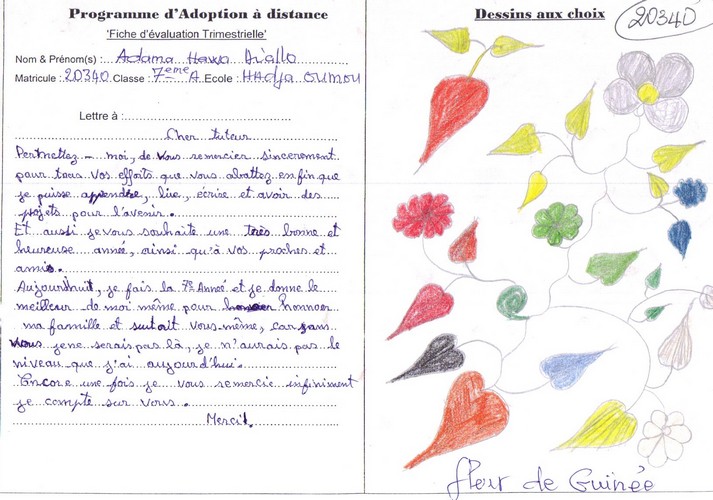 Programme d'Adoption à distance
'Fiche d'évaluation Trimestrielle'
Nom & Prénom(s) : Adama Hawa Diallo
Matricule : 20340 Classe : 7eme A Ecole : HAdja OUMOU
Lettre à :
Cher tuteur
Permettez-moi, de vous remercier sincerement
pour tous vos efforts que vous abattez enfin que
je puisse apprendre, lire, écrire et avoir des
projets pour l'avenir.
Et aussi je vous souhaite une très bonne et
heureuse année, ainsi qu'à vos proches et
amis.
Aujourd'huit, je fais la 7e Anneé et je donne le
meilleur de moi même pour honnoer
ma famille et surtout vous-même, car sans
vous jene serais pas là, je n'aurais pas le
niveau que j'ai aujourd'hui.
Encore une fois je vous remercie infiniment
je compte sur vous.
Merci!.
Dessins aux choix
20340
fleur de Guinée